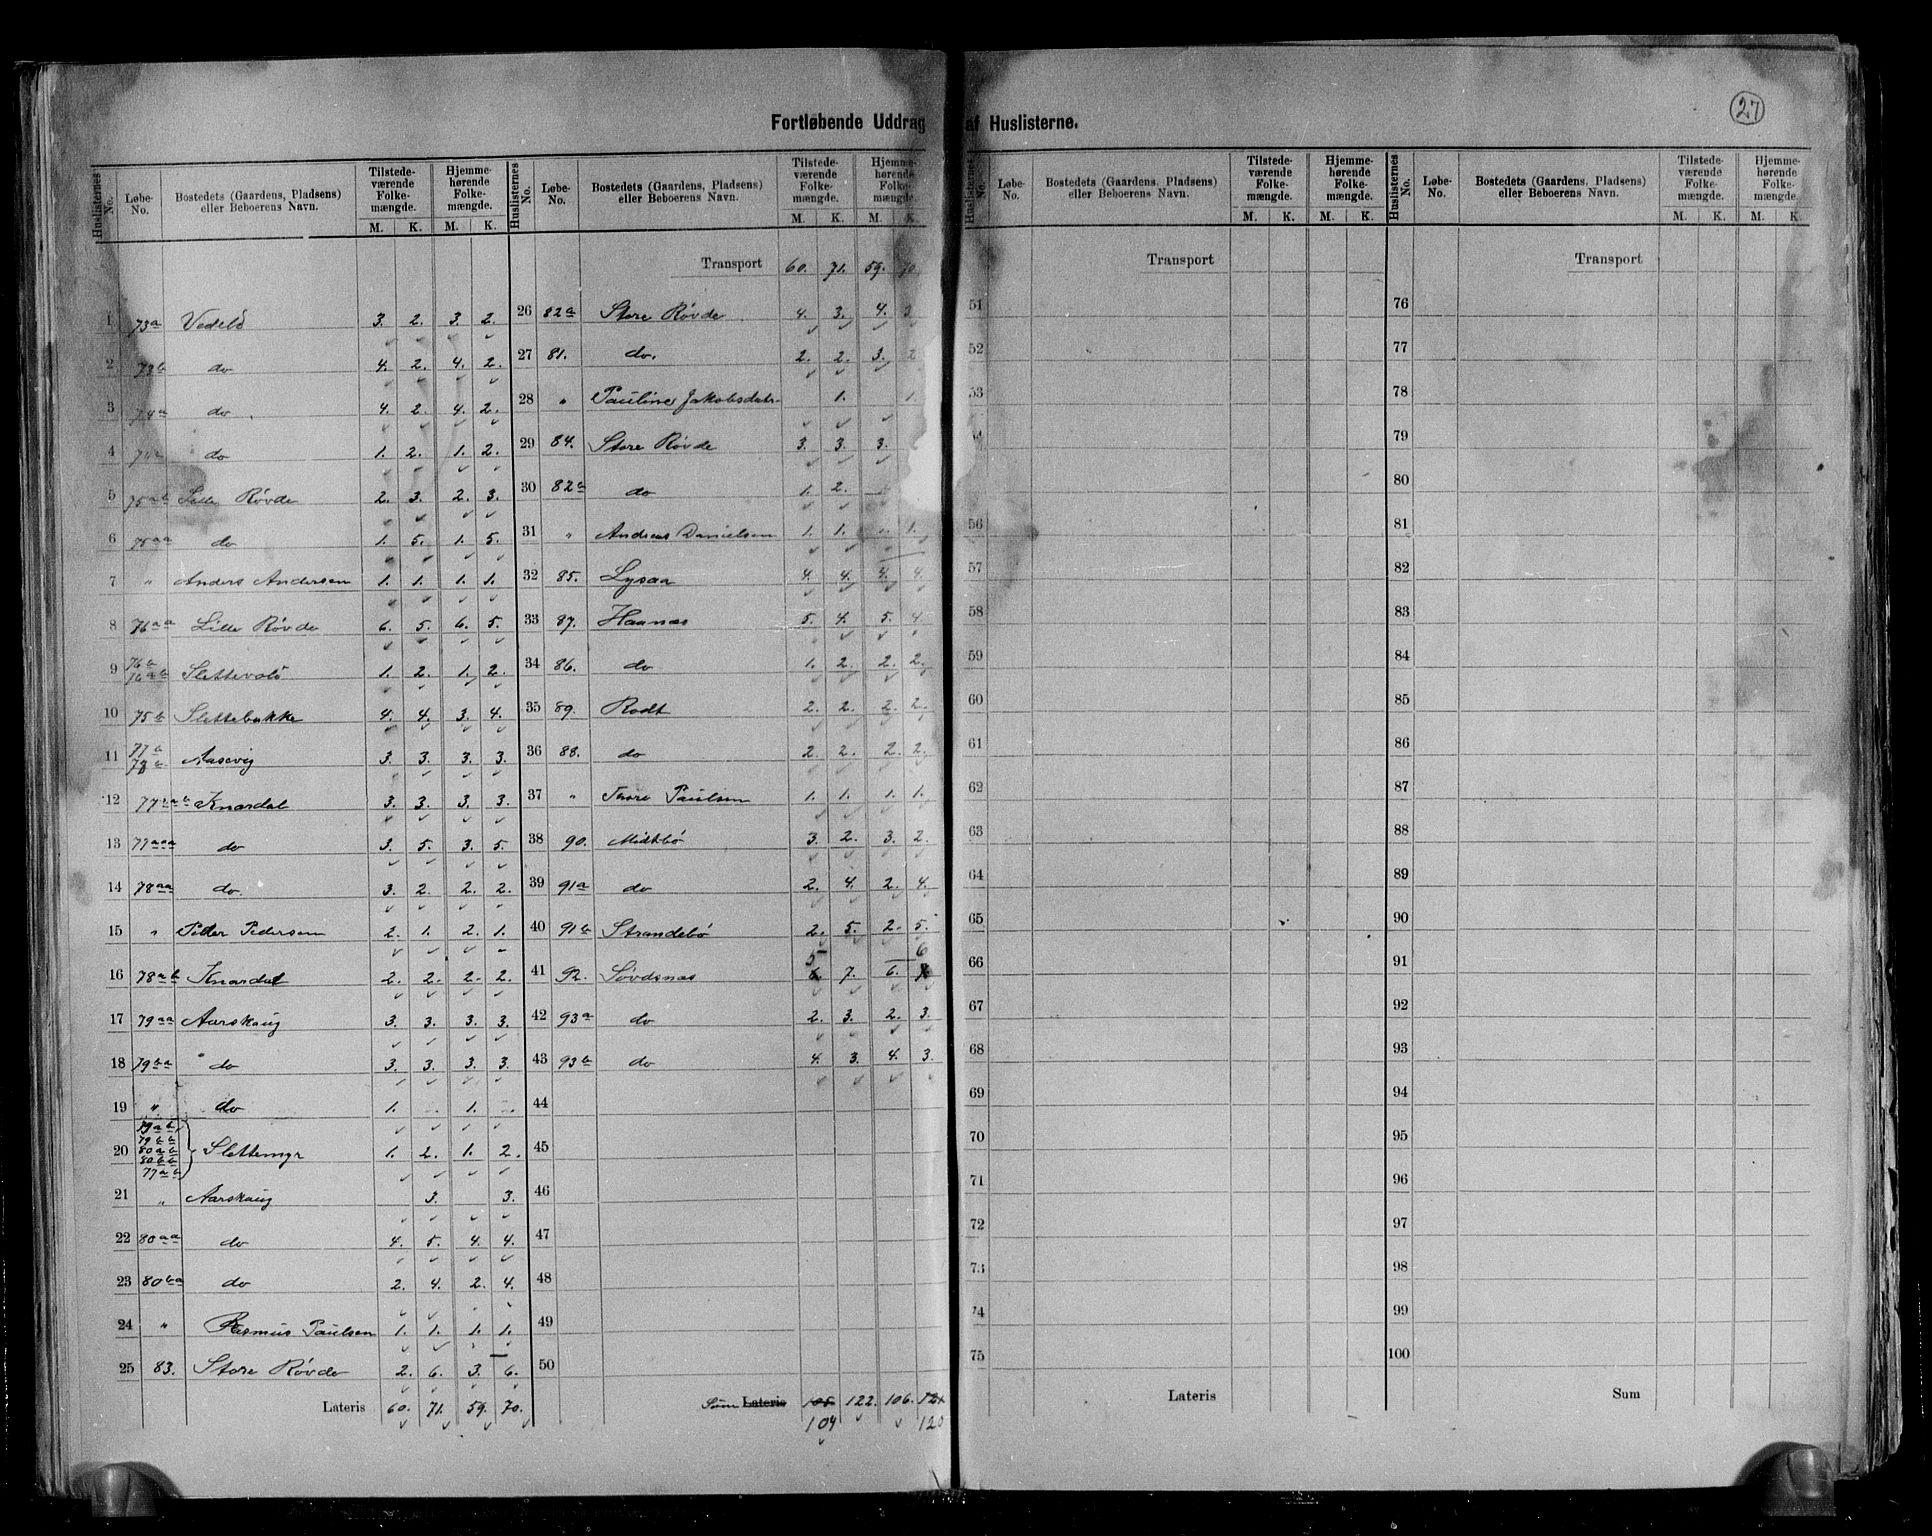 27
Fortløbende Uddrag af Huslisterne.
Huslisternes No. Løbe-No. Bostedets (Gaardens, Pladsens) eller Beboerens Navn. Tilstede-værende Folke-mængde. M. K. Hjemme-hørende Folke-mængde. M. K.
1 73a Vedelö 3. 2. 3. 2.
2 73b do 4. 2. 4. 2.
3 74a do 4. 2. 4. 2.
4 do 1. 2. 1. 2.
5 75ab Lille Røvde 2. 3. 2. 3.
6 75aa do 1. 5. 1. 5.
7 " Anders Andersen 1. 1. 1. 1.
8 76aa Lille Røvde 6. 5. 6. 5.
9 76b 76ab Slettevold 1. 2. 1. 2.
10 75b Slettebakke 4. 4. 3. 4.
11 77b 78b Aasevig 3. 3. 3. 3.
12 Knardal 3. 3. 3. 3.
13 77aaa do 3. 5. 3. 5.
14 78aa do. 3. 2. 2. 2.
15 " Peder Pedersen 2. 1. 2. 1.
16 78ab Knardal 2. 2. 2. 2.
17 79aa Aarskaug 3. 3. 3. 3.
18 79ba do 3. 3. 3. 3.
19 " do 1. 1.
20 79ab 79bb 80ab 80bb 77ab Slettemyr 1. 2. 1. 2.
21 " Aarskaug 3. 3.
22 80aa do 4. 5. 4. 4.
23 80ba do 2. 4. 2. 4.
24 " Rasmus Paulsen 1. 1. 1. 1.
25 83. Store Røvde 2. 6. 3. 6.
Lateris 60. 71. 59. 70.
Huslisternes No. Løbe-No. Bostedets (Gaardens, Pladsens) eller Beboerens Navn. Tilstede-værende Folke-mængde. M. K. Hjemme-hørende Folke-mængde. M. K.
Transport 60. 71. 59. 70.
26 82a Store Røvde 4. 3. 4. 3
27 81. do. 2. 2. 3. 2
28 " Pauline Jakobsdatr 1. 1.
29 84. Store Røvde 3. 3. 3.
30 82b do 1. 2.
31 " Andreas Danielsen 1. 1. 1.
32 85. Lysaa 4. 4. 4. 4.
33 87. Haanæs 5. 4. 5. 4.
34 86. do 1. 2. 2. 2.
35 89. Rodt 2. 2. 2. 2.
36 88. do 2. 2. 2. 2.
37 " Thore Paulsen 1. 1. 1. 1.
38 90. Midtbø 3. 2. 3. 2.
39 91a do 2. 4. 2. 4.
40 91b Strandebø 2. 5. 2. 5.
5 6
41 92. Søvdsnæs 6 7. 6. 7
42 93a do 2. 3. 2. 3.
43 93b do 4. 3. 4. 3.
44
45
46
47
48
49
50
Sum Lateris 105 122. 106. 121
104 120
Huslisternes No. Løbe-No. Bostedets (Gaardens, Pladsens) eller Beboerens Navn. Tilstede-værende Folke-mængde. M. K. Hjemme-hørende Folke-mængde. M. K.
Transport
51
52
53
56
57
58
59
60
61
62
63
64
65
66
67
68
69
70
71
72
73
74
75
Lateris
Huslisternes No. Løbe-No. Bostedets (Gaardens, Pladsens) eller Beboerens Navn. Tilstede-værende Folke-mængde. M. K. Hjemme-hørende Folke-mængde. M. K.
Transport
76
77
78
79
80
81
82
83
84
85
86
87
88
89
90
91
92
93
94
95
96
97
98
99
100
Sum